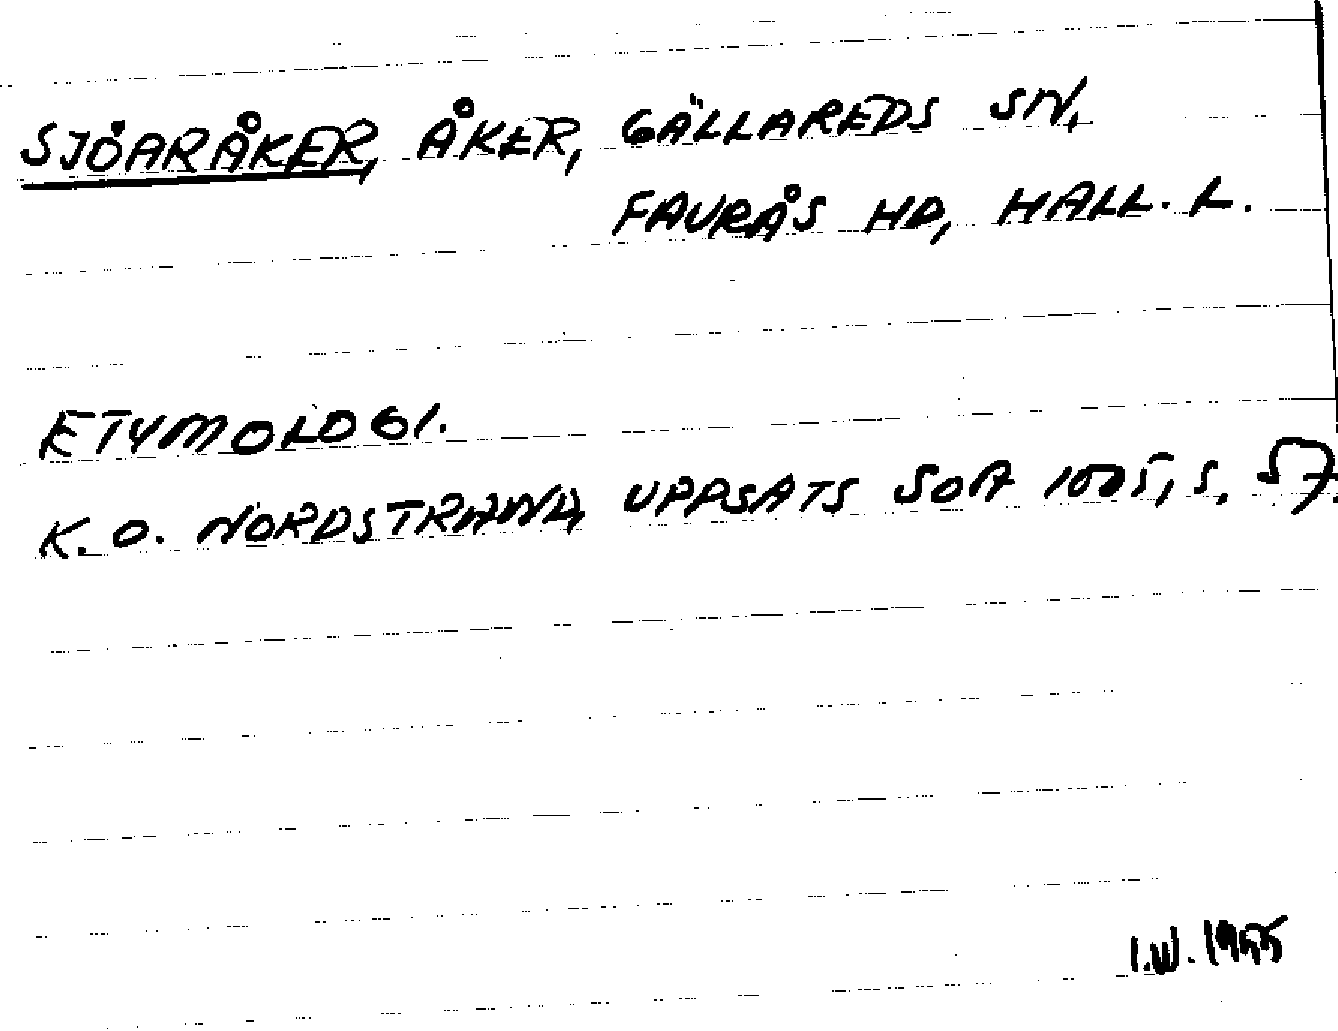 SJÖARÅKER, ÅKER, GÄLLAREDS SN,
FAURÅS HD, HALL. L.
ETYMOLOGI.
K. O. NORDSTRAND, UPPSATS SOA 1005, S. 57.
I.W. 1955